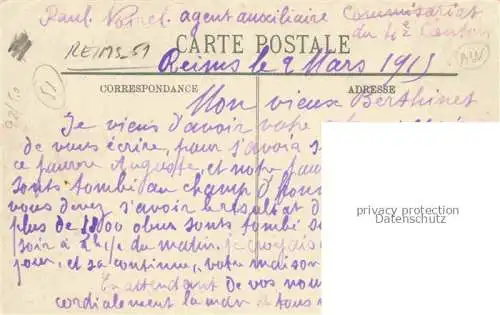 Paul Noirel. agent auxiliaire Commissariat
du 4e Canton
REIMS_51
CARTE POSTALE
AW
Reims le 2 Mars 1915
CORRESPONDANCE ADRESSE
51
Mon vieux Berthinet
Je viens d'avoir votre
de vous écrire, pour s'avoir
ce pauvre Auguste, et notre
sonts tombé au champ d'Hon
vous devez s'avoir le résultat d
plus de obus sonts tombé s
soir à 2h 1/2 du matin. je
jour, et sa continue, votre maison
En attendant de vos nou
cordialement la main et tous
privacy protection
Datenschutz